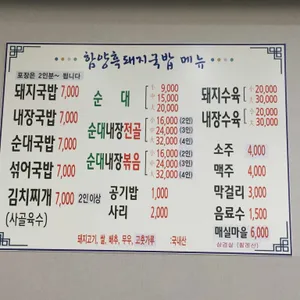 함양흑돼지국밥 메뉴
포장은 2인분~ 됩니다
돼지국밥 7,000
내장국밥 7,000
순대국밥 7,000
섞어국밥 7,000
김치찌개 7,000 2인이상
(사골육수)
순 대 소 9,000
중 15,000
대 20,000
순대내장전골 16,000 (2인)
24,000 (3인)
32,000 (4인)
순대내장볶음 16,000 (2인)
24,000 (3인)
32,000 (4인)
공기밥 1,000
사리 2,000
돼지수육 소 20,000
대 30,000
내장수육 소 20,000
대 30,000
소주 4,000
맥주 4,000
막걸리 3,000
음료수 1,500
매실마을 6,000
돼지고기, 쌀, 배추, 무우, 고춧가루 :국내산